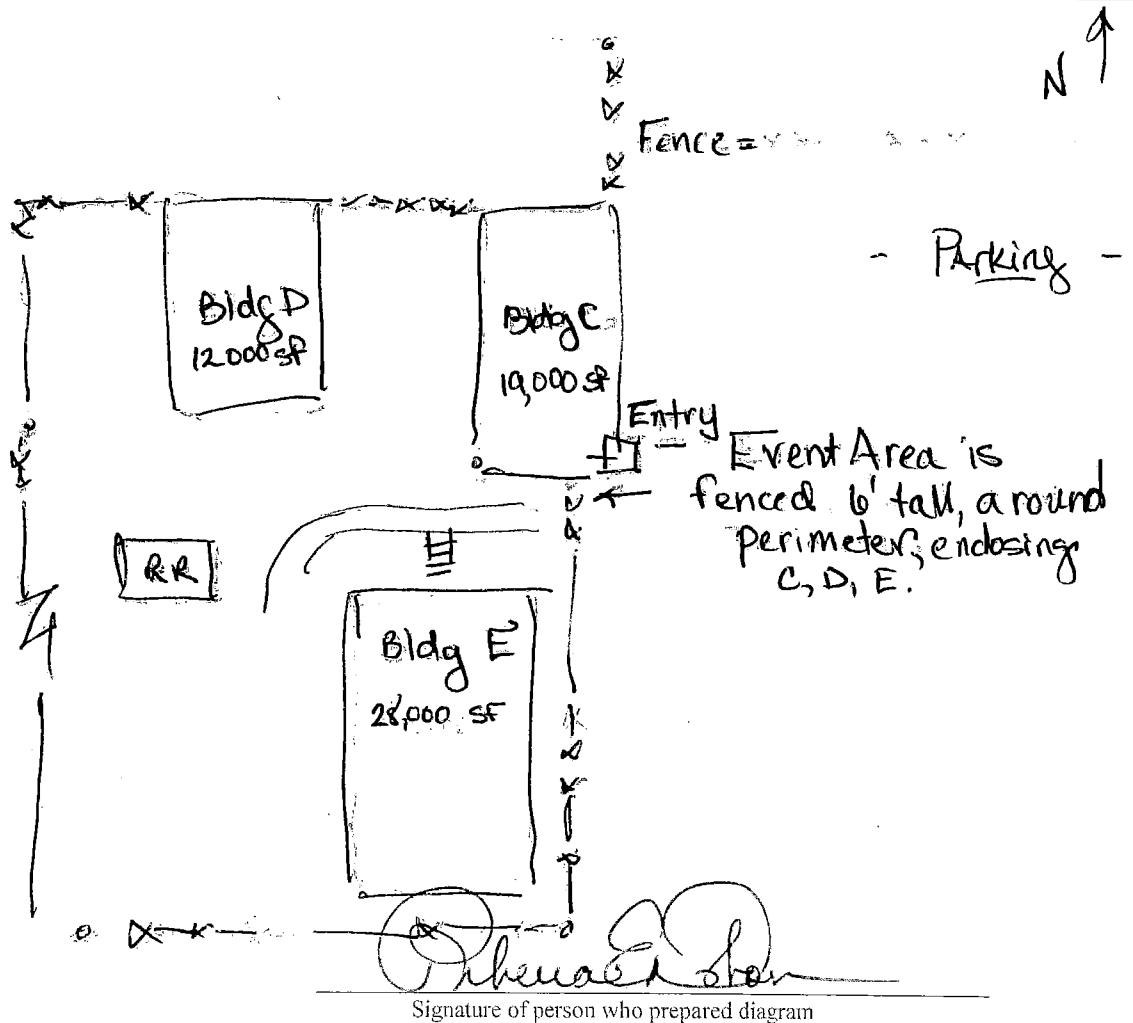 N
Fence =
- Parking -
Bldg D
12000 sf
Bldg C
19,000 sf
Entry
Event Area is
fenced 6' tall, around
perimeter, enclosing
C, D, E.
RR
Bldg E
28,000 SF
Signature of person who prepared diagram